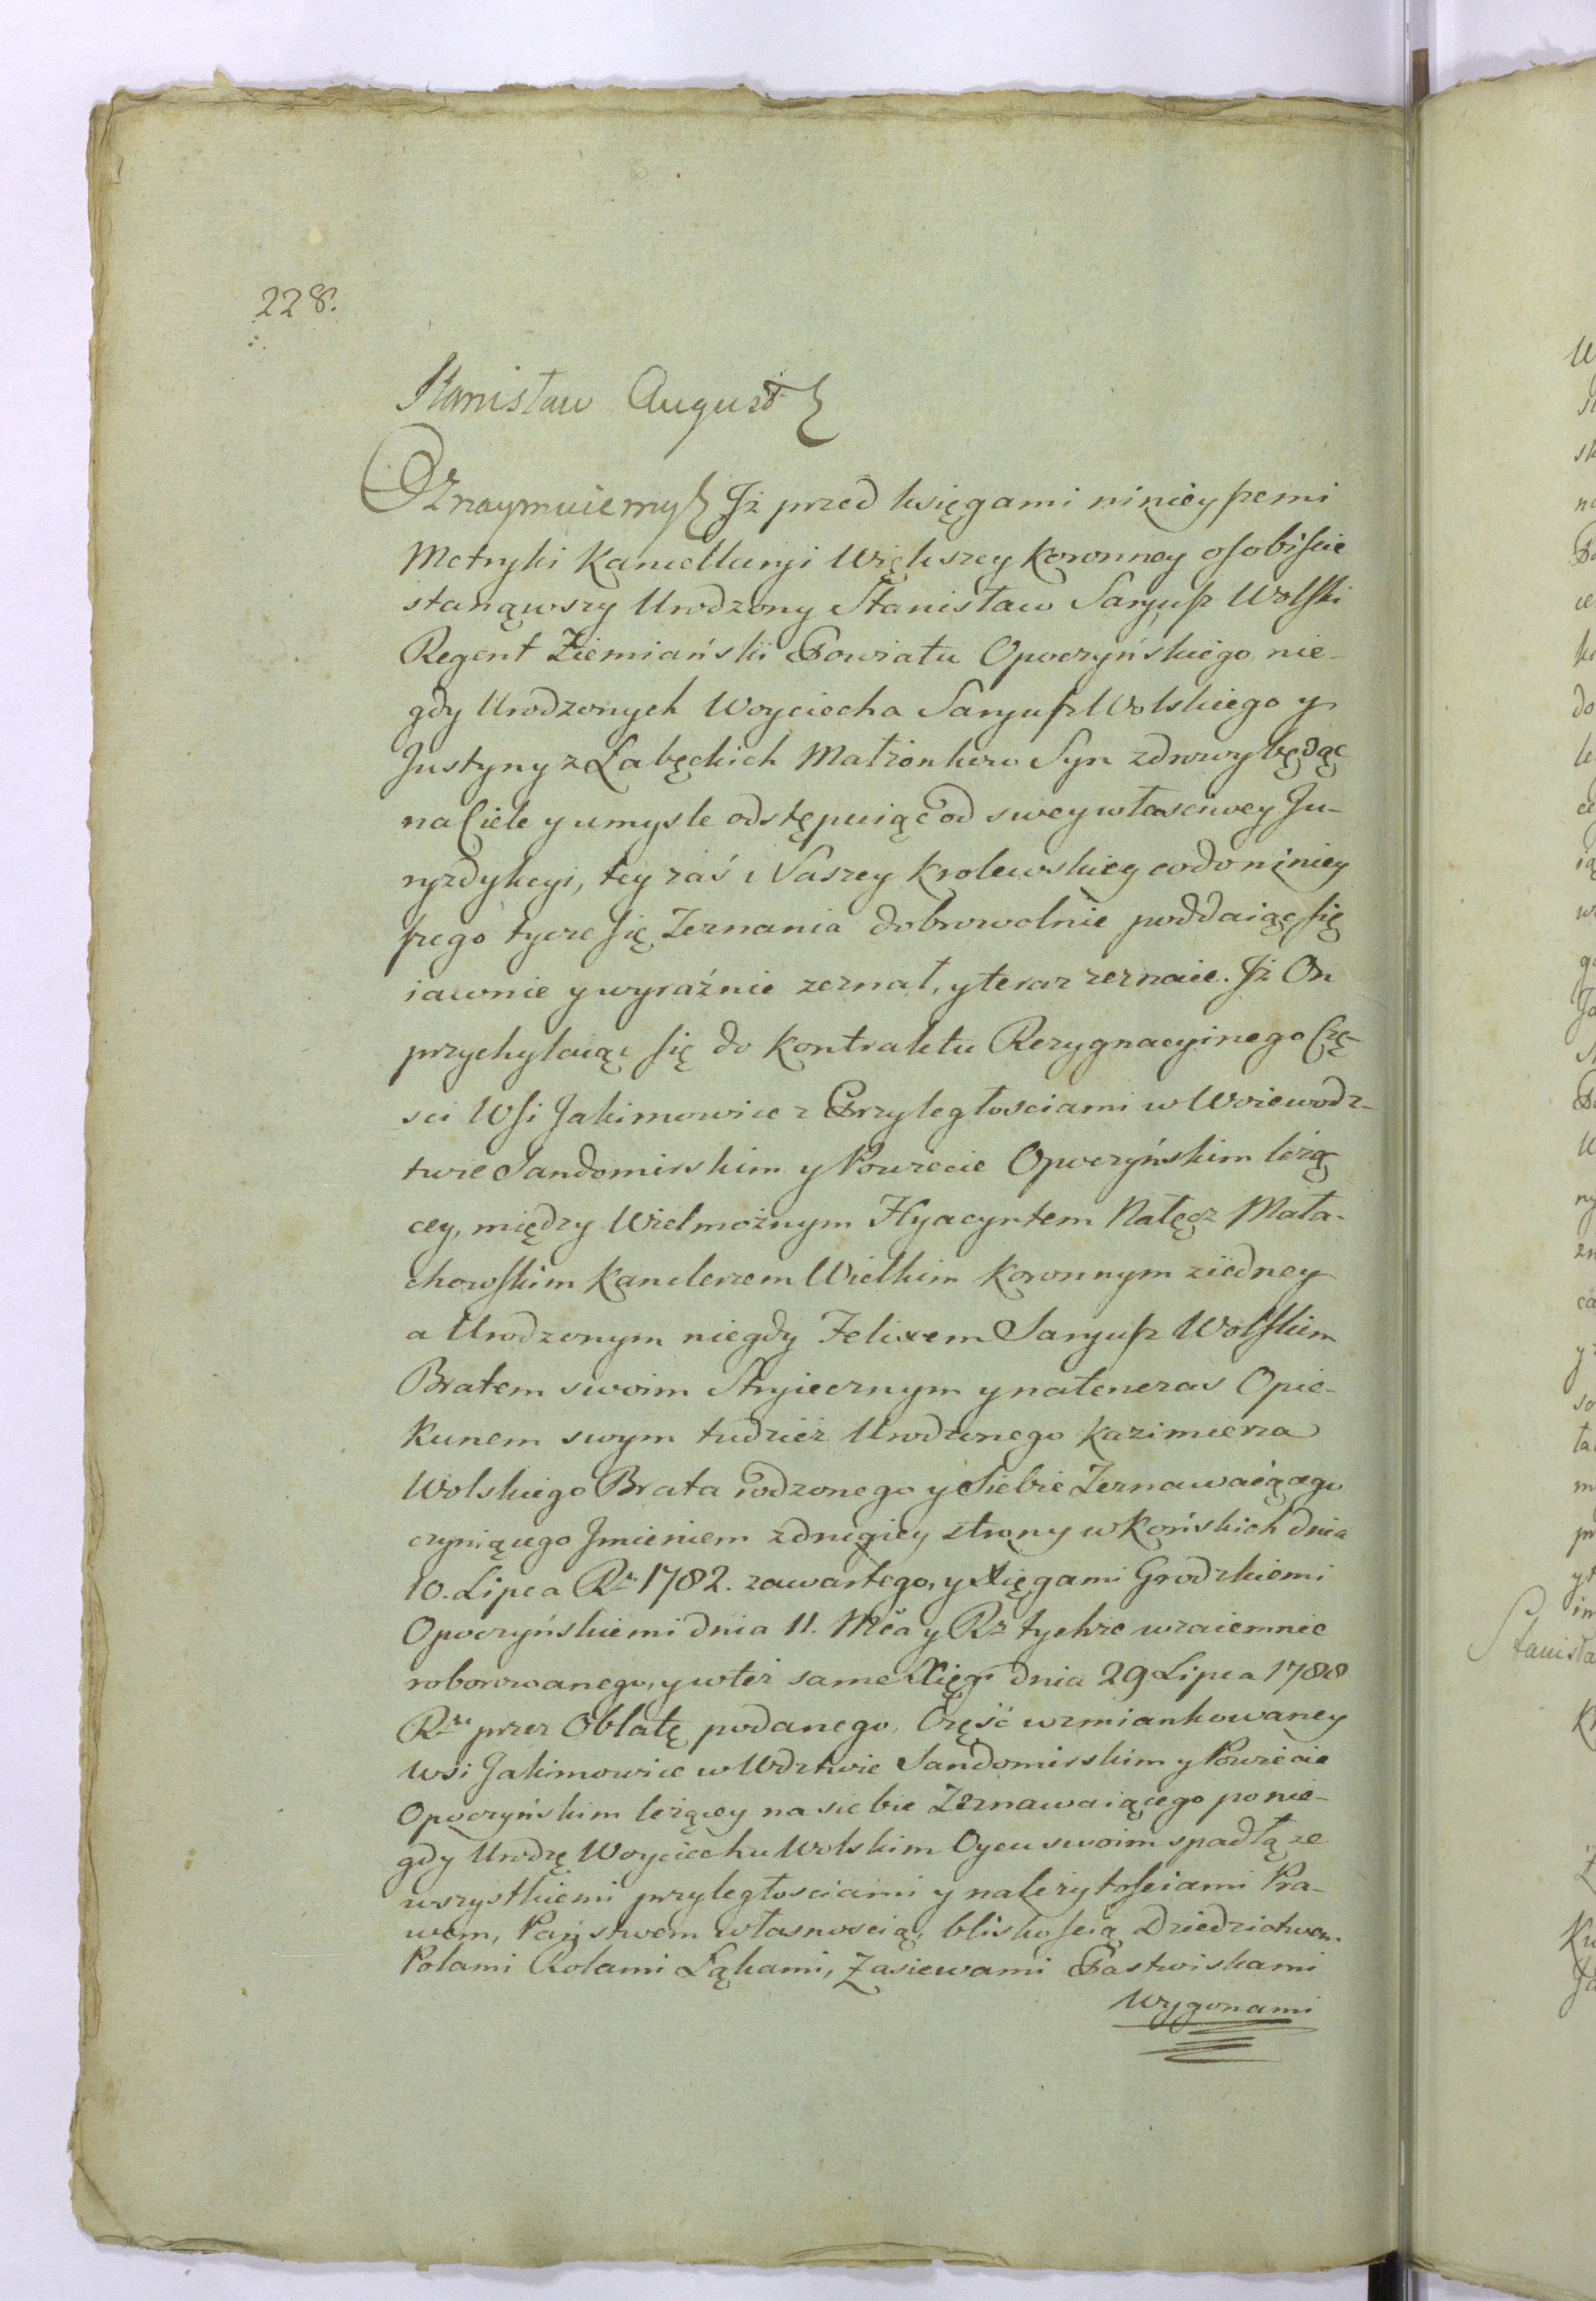 228.
Stanisław August
Oznaymuiemy Jż przed księgami ninieyszemi
Metryki Kancellaryi Większey Koronney osobiscie
stanąwszy Urodzony Stanisław Saryusz Wolski
Regent Ziemiański Powiatu Opoczyńskiego, nie-
gdy Urodzonych Woyciecha Saryusz Wolskiego y
Justyny z Łabęckich Małżonkow Syn zdrowy będąc
na Ciele y umysle odstępuiąc od swey własciwey Ju-
ryzdykcyi, tey zaś Naszey Krolewskiey co do niniey
szego tycze się Zeznania dobrowolnie poddaiąc się
iawnie y wyraźnie zeznał, y teraz zeznaie. Jż On
przychylaiąc się do Kontraktu Rezygnacyinego Czę-
sci Wsi Jakimowice z Przyległosciami w Woiewodz-
twie Sandomirskim y Powiecie Opoczyńskim leżą
cey, między Wielmożnym Hyacyntem Nałęcz Mała-
chowskim Kanclerzem Wielkim Koronnym z iedney
a Urodzonym niegdy Felixem Saryusz Wolskim
Bratem swoim Stryiecznym y natenczas Opie-
kunem swym tudzież Urodzonego Kazimierza
Wolskiego Brata rodzonego y Siebie Zeznawaiącego
czyniącego Jmieniem z drugiey strony w Końskich dnia
10. Lipca Ru 1782. zawartego, y Xięgami Grodzkiemi
Opoczyńskiemi dnia 11. Mca y Rz tychże wzaiemnie
roborowanego, y w też same Xięgi dnia 29 Lipca 1788
Ru przez Oblatę podanego, Część wzmiankowaney
wsi Jakimowice w Wdztwie Sandomirskim y Powiecie
Opoczyńskim leżącey na siebie Zeznawaiącego po nie-
gdy Urodzę Woyciechu Wolskim Oycu swoim spadłą ze
wszystkiemi przyległosciami y należytosciami Pra-
wem, Państwem własnoscią, bliskoscią Dziedzictwem.
Polami Rolami Łąkami, Zasiewami Pastwiskami
Wygonami